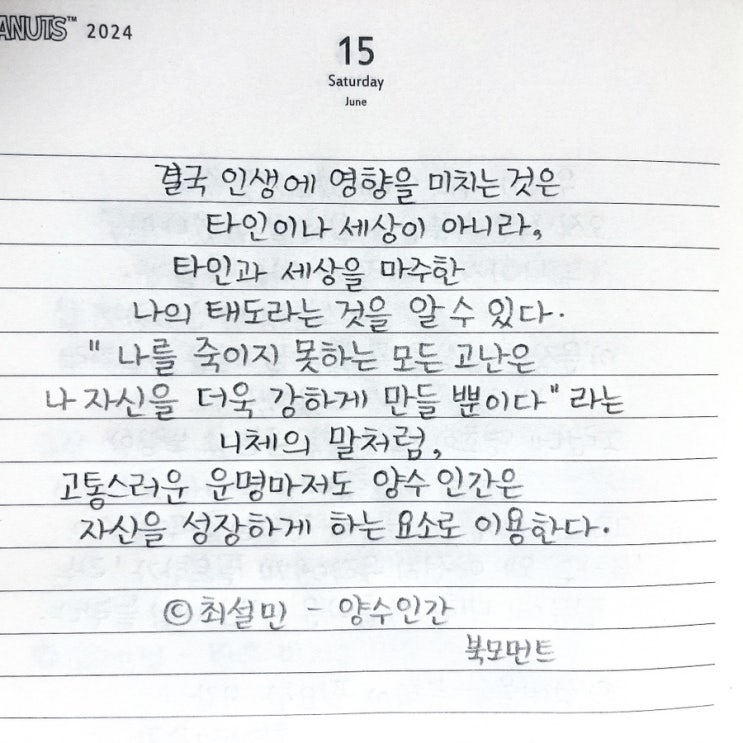 PEANUTS™ 2024
15
Saturday
June
결국 인생에 영향을 미치는 것은
타인이나 세상이 아니라,
타인과 세상을 마주한
나의 태도라는 것을 알 수 있다.
" 나를 죽이지 못하는 모든 고난은
나 자신을 더욱 강하게 만들 뿐이다" 라는
니체의 말처럼,
고통스러운 운명마저도 양수 인간은
자신을 성장하게 하는 요소로 이용한다.
© 최설민 - 양수인간
북모먼트